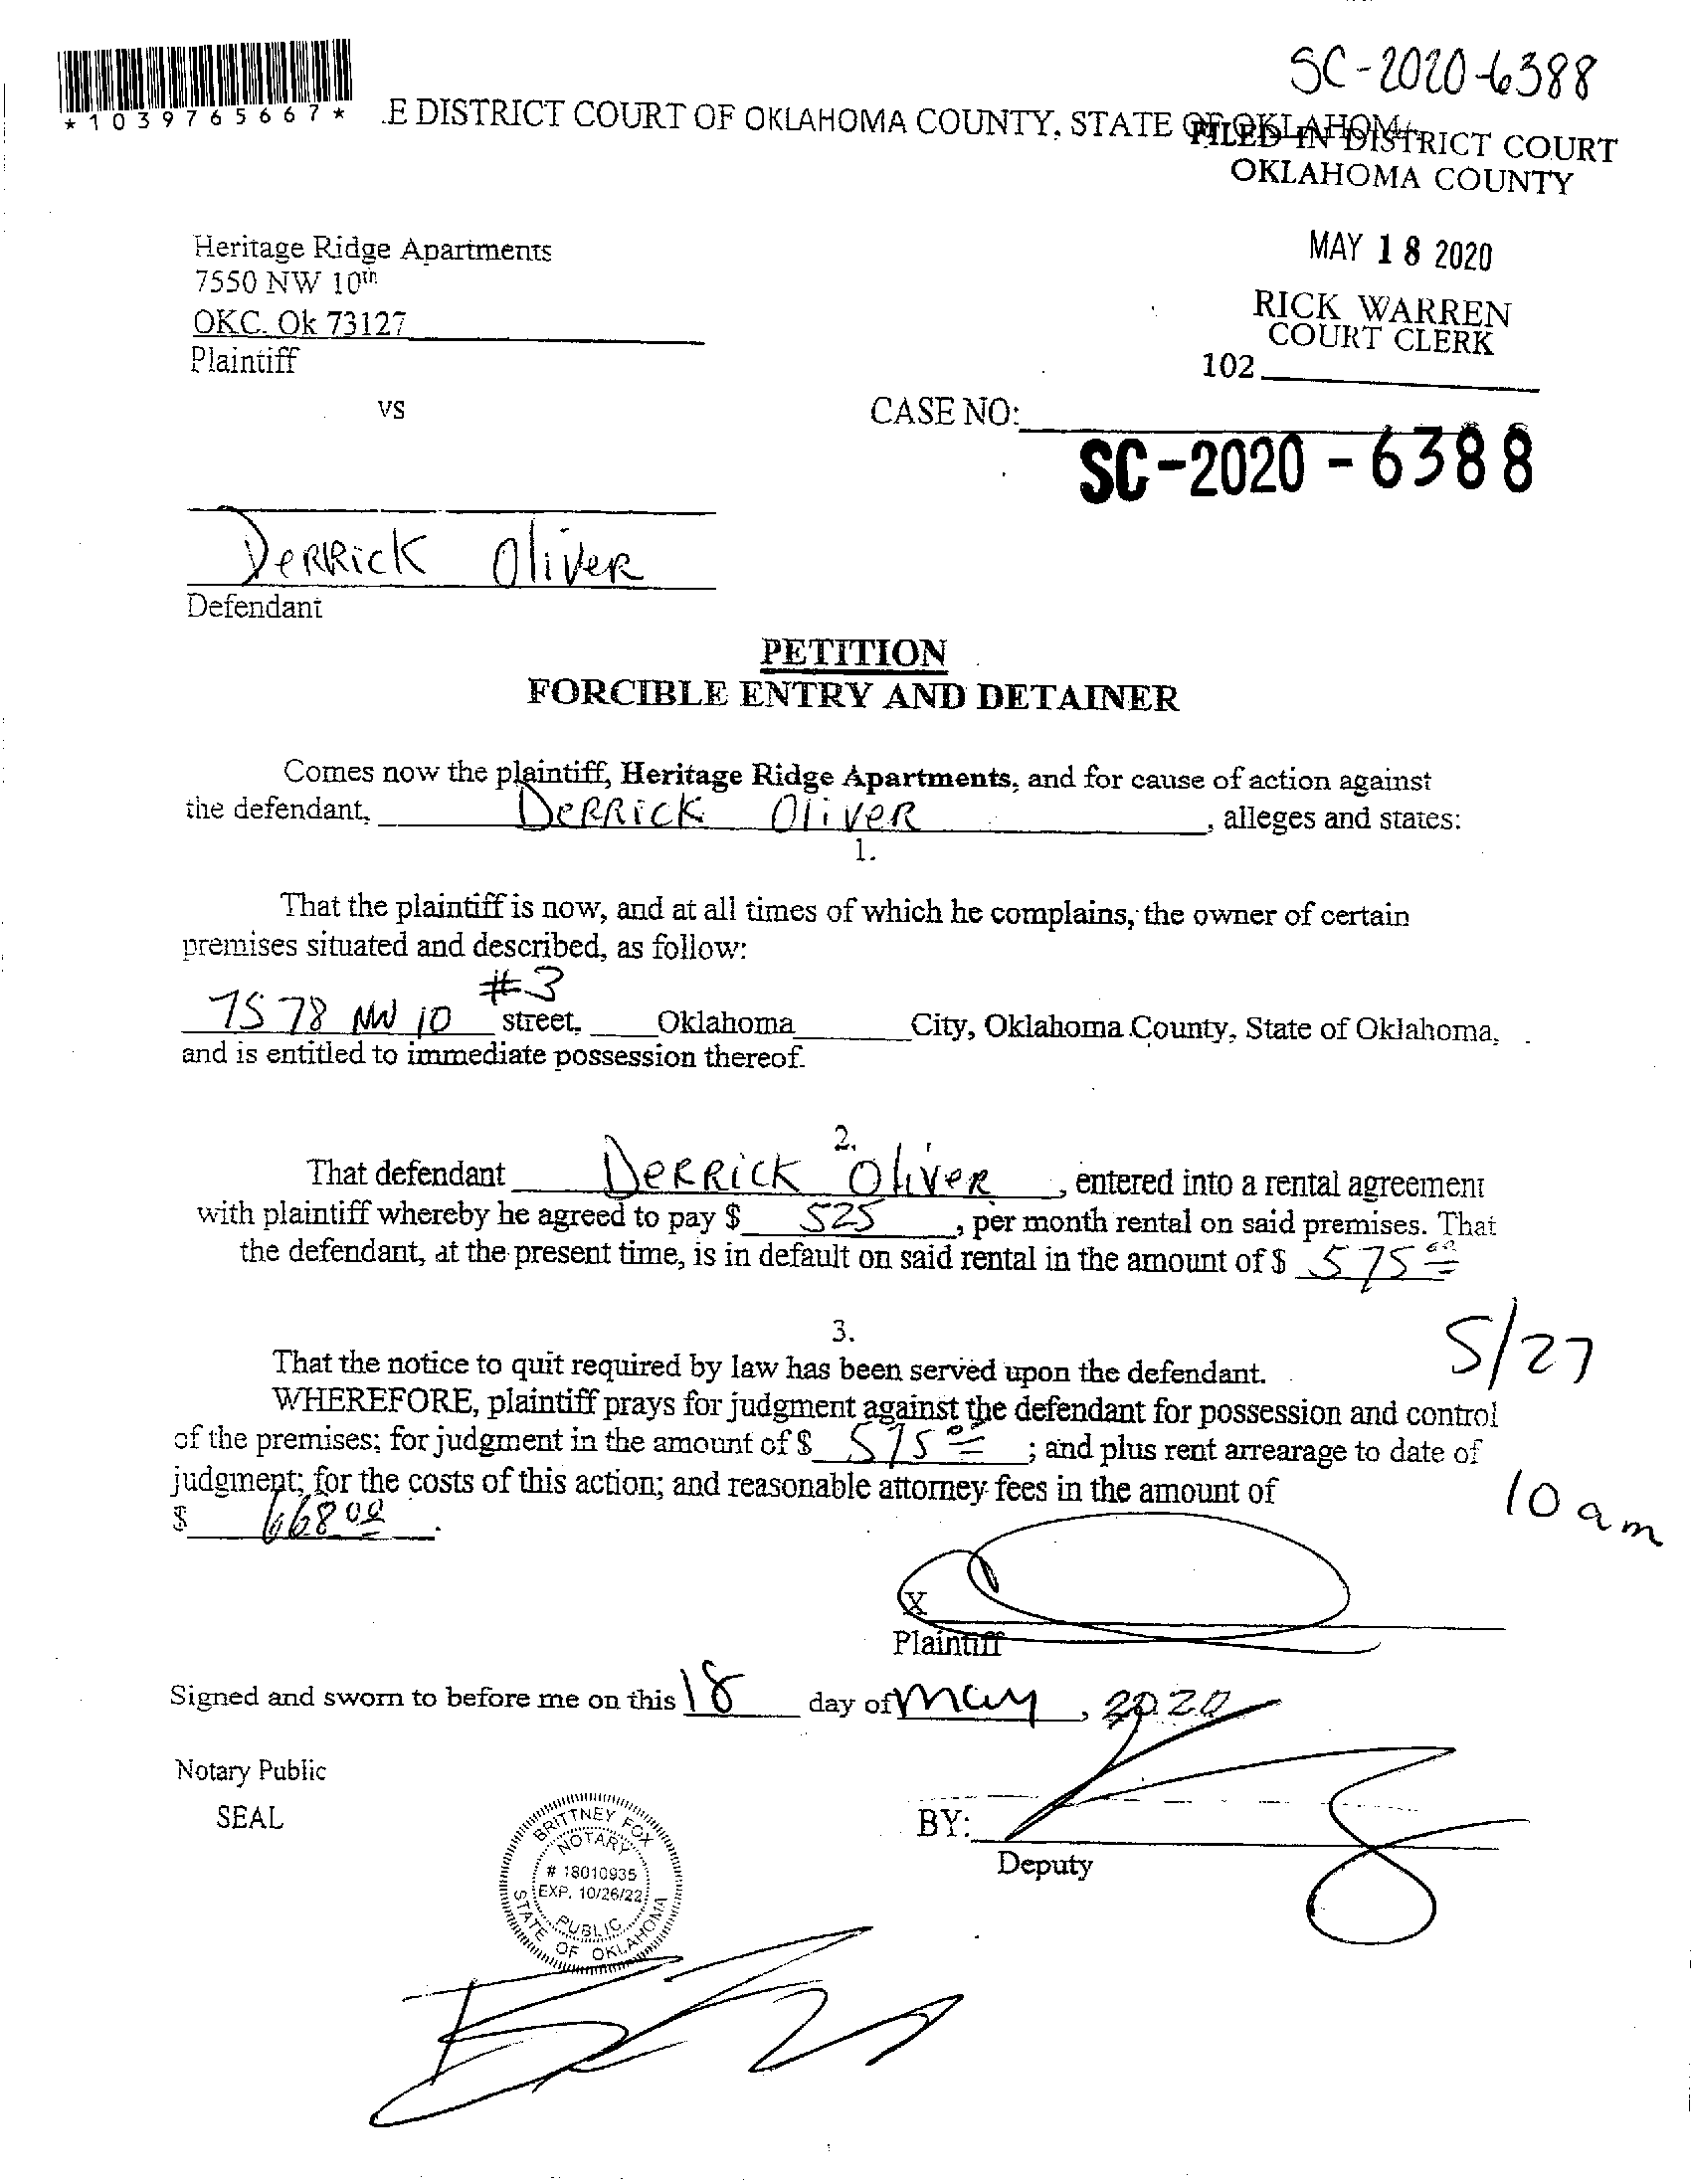 SC-2020-6388
*1039765667*
.E DISTRICT COURT OF OKLAHOMA COUNTY, STATE OF OKLAHOMA
FILED IN DISTRICT COURT
OKLAHOMA COUNTY
Heritage Ridge Apartments
7550 NW 10th
OKC. Ok 73127
Plaintiff
MAY 18 2020
RICK WARREN
COURT CLERK
102
vs
CASE NO:
SC-2020-6388
DERRick OliveR
Defendant
PETITION
FORCIBLE ENTRY AND DETAINER
Comes now the plaintiff, Heritage Ridge Apartments, and for cause of action against
the defendant, DeRRick OliveR, alleges and states:
1.
That the plaintiff is now, and at all times of which he complains, the owner of certain
premises situated and described, as follow:
#3
7578 NW 10 street, Oklahoma City, Oklahoma County, State of Oklahoma,
and is entitled to immediate possession thereof.
2.
That defendant DeRRick OliveR, entered into a rental agreement
with plaintiff whereby he agreed to pay $ 525, per month rental on said premises. That
the defendant, at the present time, is in default on said rental in the amount of $ 575 00
3.
That the notice to quit required by law has been served upon the defendant.
5/27
WHEREFORE, plaintiff prays for judgment against the defendant for possession and control
of the premises; for judgment in the amount of $ 575 00; and plus rent arrearage to date of
judgment; for the costs of this action; and reasonable attorney fees in the amount of
$ 668 00.
10 am
X
Plaintiff
Signed and sworn to before me on this 18 day of may, 2020
Notary Public
SEAL
BRITTNEY FOX
NOTARY
# 18010935
EXP. 10/26/22
PUBLIC
STATE OF OKLAHOMA
BY:
Deputy